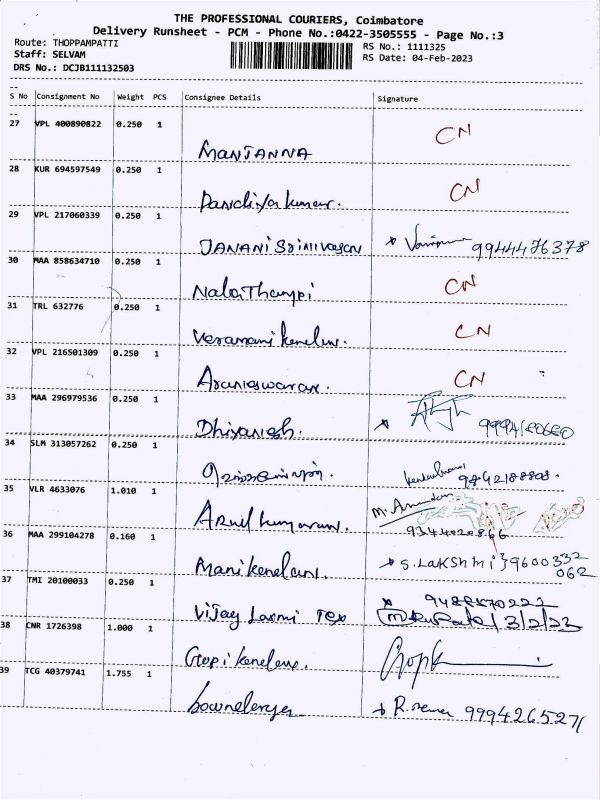 THE PROFESSIONAL COURIERS, Coimbatore
Delivery Runsheet - PCM - Phone No.:0422-3505555 - Page No.:3
Route: THOPPAMPATTI RS No.: 1111325
Staff: SELVAM RS Date: 04-Feb-2023
DRS No.: DCJB111132503
S No Consignment No Weight PCS Consignee Details Signature
27 VPL 400890822 0.250 1 MANJANNA CN
28 KUR 694597549 0.250 1 Pandiyakumar. CN
29 VPL 217060339 0.250 1 JANANI Srinivasan 9944476378
30 MAA 858634710 0.250 1 NalaThampi CN
31 TRL 632776 0.250 1 CN
32 VPL 216501309 0.250 1 CN
33 MAA 296979536 0.250 1 Dhiyanesh.
34 SLM 313057262 0.250 1
35 VLR 4633076 1.010 1 Arulkumaran.
36 MAA 299104278 0.160 1 S. LAKSHMI } 9600332
062
37 TMI 20100033 0.250 1 Vijay Laxmi Tex 3/2/23
38 CNR 1726398 1.000 1
39 TCG 40379741 1.755 1 9994265271